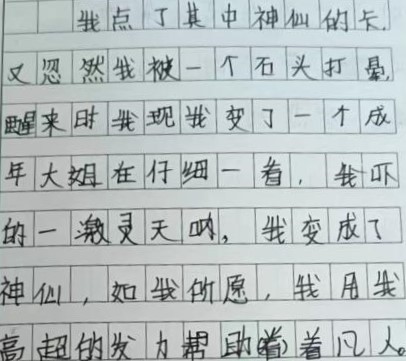 我点了其中神仙的卡,
又忽然我被一个石头打晕,
醒来时我现我变了一个成
年大姐在仔细一看,我吓
的一激灵天呐,我变成了
神仙,如我所愿,我用我
高超的发力帮助着凡人。